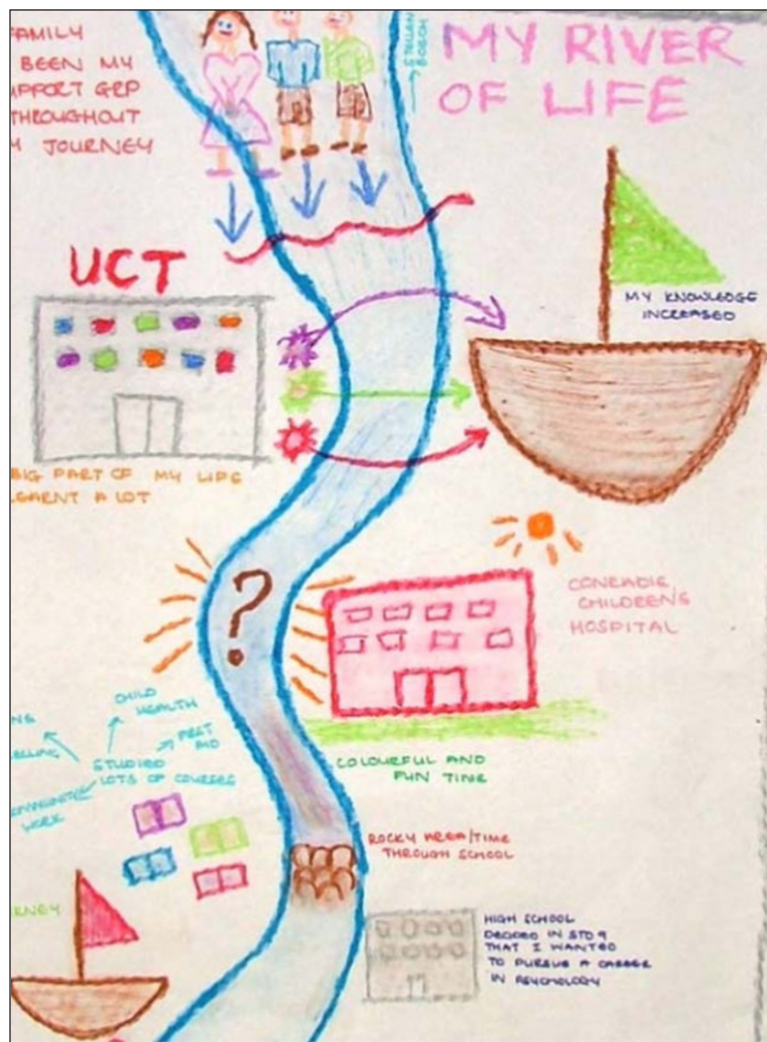 FAMILY
BEEN MY
SUPPORT GRP
THROUGHOUT
MY JOURNEY
→ STELLEN
BOSCH
MY RIVER
OF LIFE
UCT
MY KNOWLEDGE
INCREASED
BIG PART OF MY LIFE
LEARNT A LOT
?
CONRADIE
CHILDREN'S
HOSPITAL
CHILD
HEALTH
FIRST
AID
STUDIED
LOTS OF COURSES
COMMUNITY
WORK
COLOURFUL AND
FUN TIME
ROCKY AREA/TIME
THROUGH SCHOOL
HIGH SCHOOL
DECIDED IN STD 9
THAT I WANTED
TO PURSUE A CAREER
IN PSYCHOLOGY